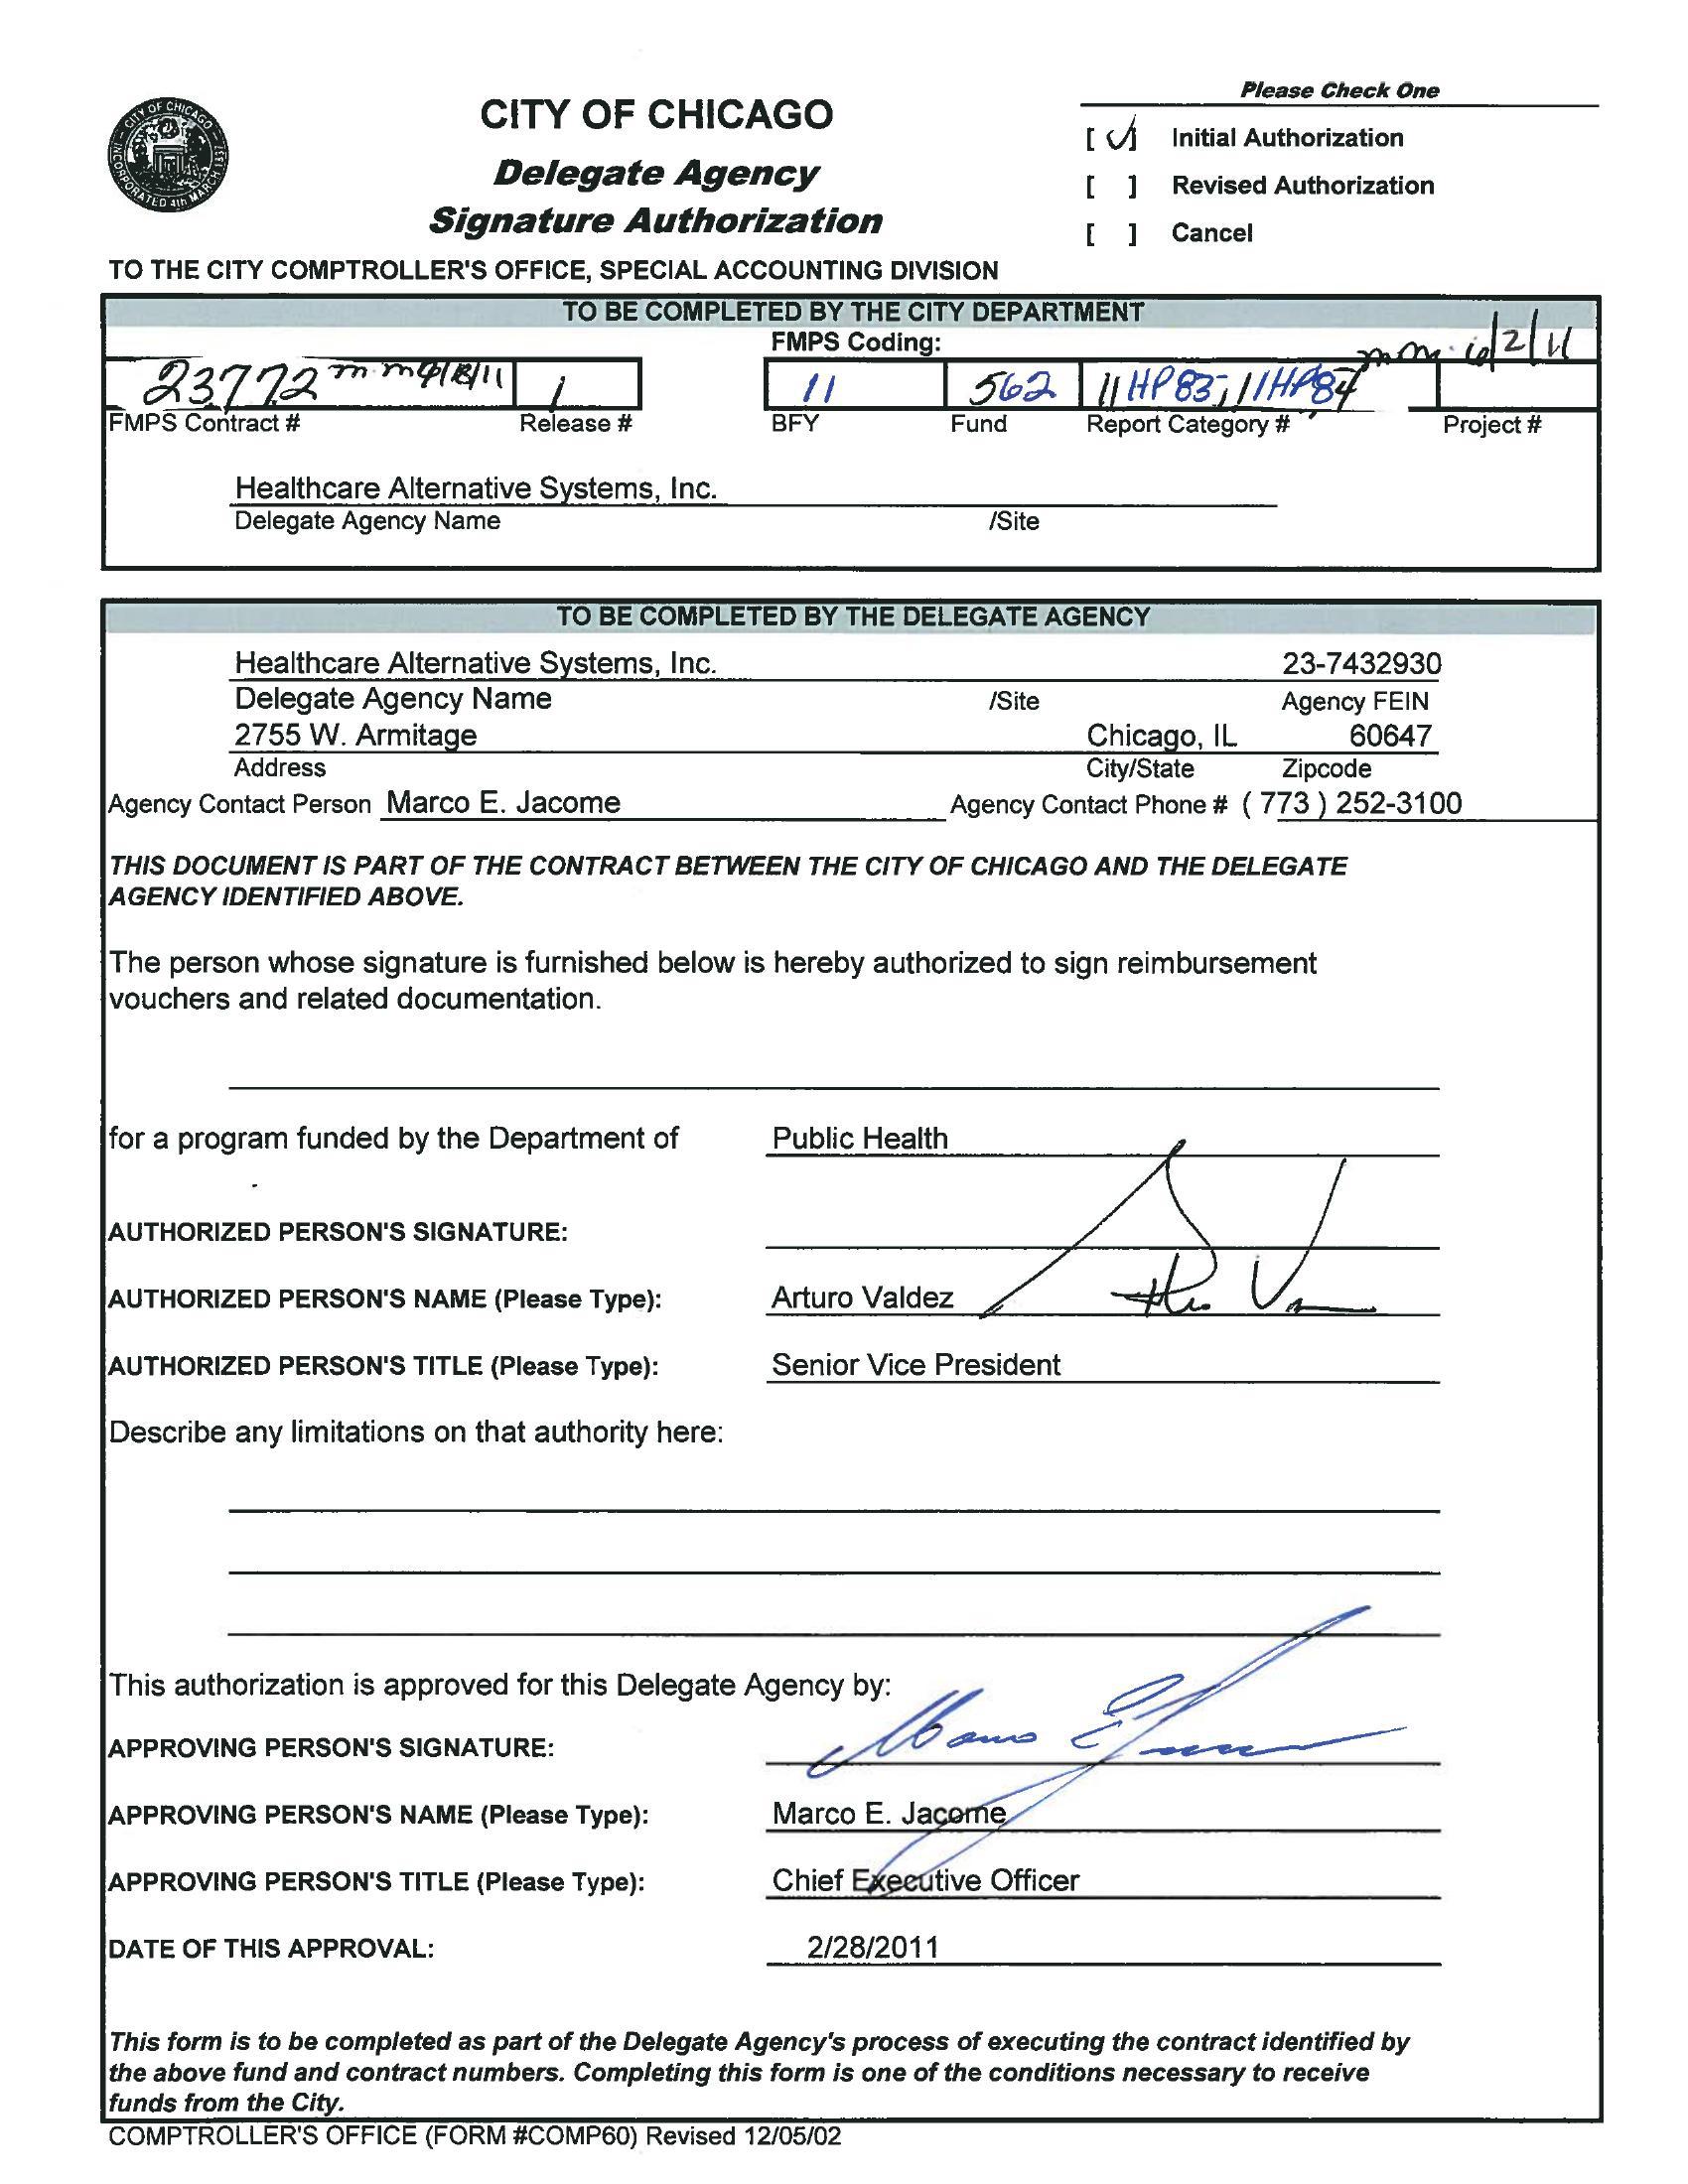 Please Check One
CITY OF CHICAGO
Delegate Agency
Signature Authorization
[ ✓ ] Initial Authorization
[ ] Revised Authorization
[ ] Cancel
CITY OF CHICAGO
INCORPORATED 4th MARCH 1837
TO THE CITY COMPTROLLER'S OFFICE, SPECIAL ACCOUNTING DIVISION
TO BE COMPLETED BY THE CITY DEPARTMENT
FMPS Coding:
mm. 6/2/11
23772 m.m 4/18/11 1 11 562 11HP83, 11HP84
FMPS Contract # Release # BFY Fund Report Category # Project #
Healthcare Alternative Systems, Inc.
Delegate Agency Name /Site
TO BE COMPLETED BY THE DELEGATE AGENCY
Healthcare Alternative Systems, Inc. 23-7432930
Delegate Agency Name /Site Agency FEIN
2755 W. Armitage Chicago, IL 60647
Address City/State Zipcode
Agency Contact Person Marco E. Jacome Agency Contact Phone # ( 773 ) 252-3100
THIS DOCUMENT IS PART OF THE CONTRACT BETWEEN THE CITY OF CHICAGO AND THE DELEGATE
AGENCY IDENTIFIED ABOVE.
The person whose signature is furnished below is hereby authorized to sign reimbursement
vouchers and related documentation.
for a program funded by the Department of Public Health
AUTHORIZED PERSON'S SIGNATURE:
AUTHORIZED PERSON'S NAME (Please Type): Arturo Valdez
AUTHORIZED PERSON'S TITLE (Please Type): Senior Vice President
Describe any limitations on that authority here:
This authorization is approved for this Delegate Agency by:
APPROVING PERSON'S SIGNATURE:
APPROVING PERSON'S NAME (Please Type): Marco E. Jacome
APPROVING PERSON'S TITLE (Please Type): Chief Executive Officer
DATE OF THIS APPROVAL: 2/28/2011
This form is to be completed as part of the Delegate Agency's process of executing the contract identified by
the above fund and contract numbers. Completing this form is one of the conditions necessary to receive
funds from the City.
COMPTROLLER'S OFFICE (FORM #COMP60) Revised 12/05/02